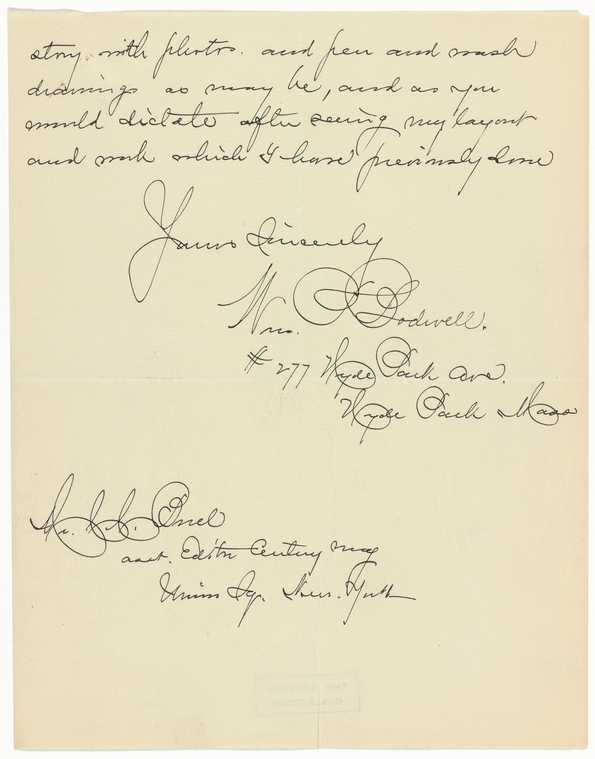 story with photos. and pen and wash
drawings as may be, and as you
would dictate after seeing my layout
and work which I have previously done
Yours Sincerely
Wm. P. Bodwell.
# 277 Hyde Park Ave.
Hyde Park Mass
Mr.
asst. Editor Century Mag
Union Sq. New. York
THE CENTURY
COLLECTION